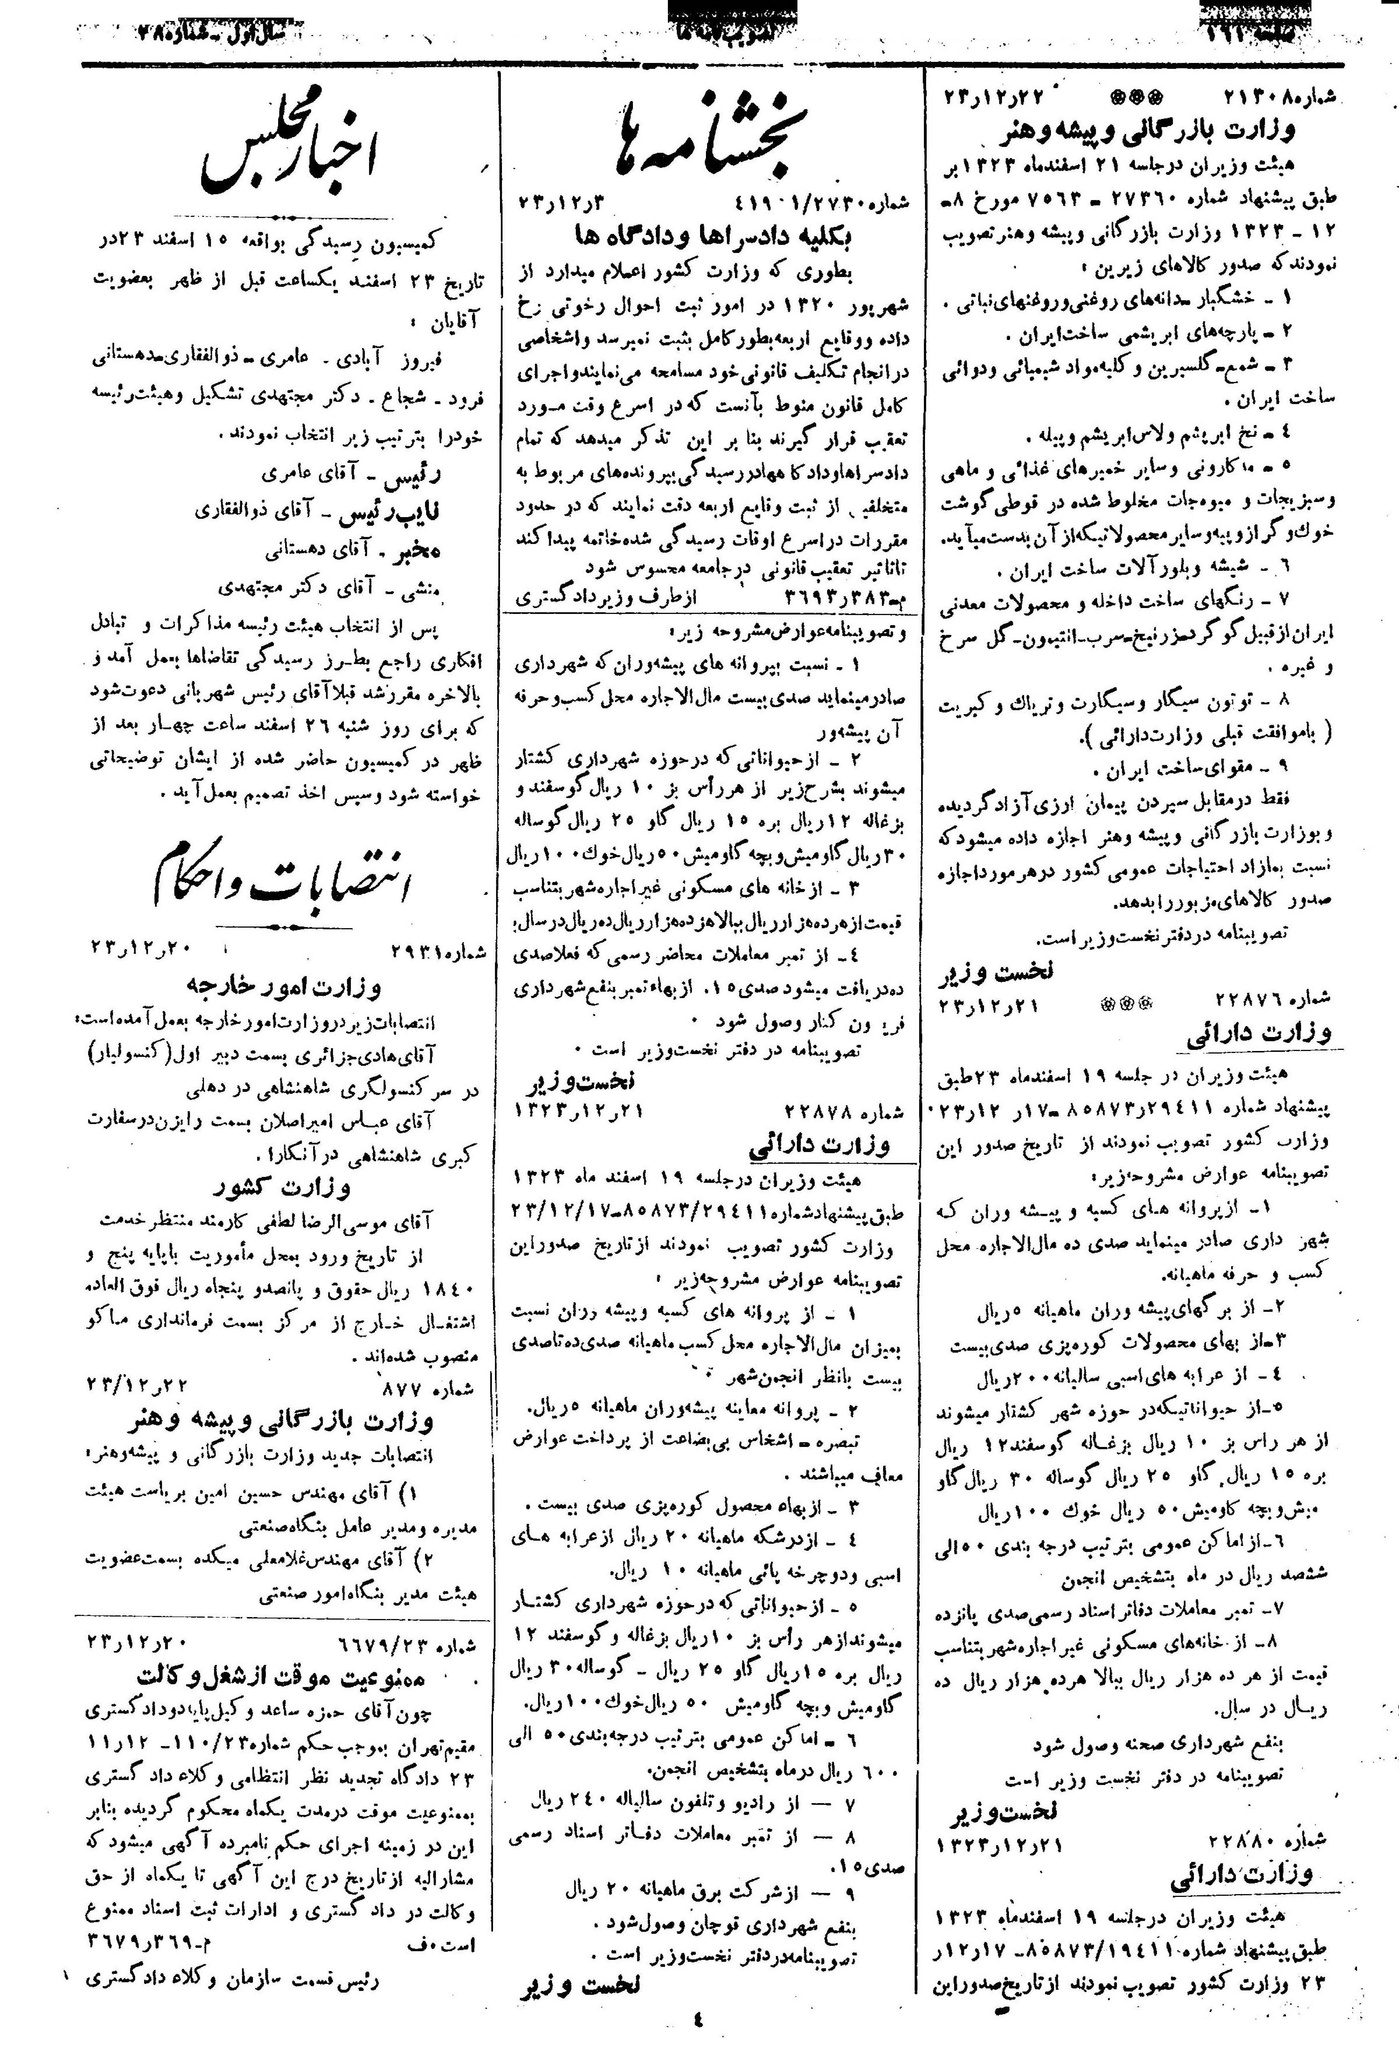 صفحه ۱۶۱
تصویب نامه ها
سال اول - شماره ۲۸
شماره ۲۱۳۰۸ ۲۲ر۱۲ر۲۳
وزارت بازرگانی و پیشه و هنر
هیئت وزیران در جلسه ۲۱ اسفندماه ۱۳۲۳ بر
طبق پیشنهاد شماره ۲۷۳۶۰ - ۷۵۶۳ مورخ ۸ -
۱۲ - ۱۳۲۳ وزارت بازرگانی و پیشه و هنر تصویب
نمودند که صدور کالاهای زیرین :
۱ - خشگبار - دانه‌های روغنی و روغنهای نباتی .
۲ - پارچه‌های ابریشمی ساخت ایران .
۳ - شمع - گلسیرین و کلیه مواد شیمیائی و دوائی
ساخت ایران .
٤ - نخ ابریشم ولاس ابریشم و پیله .
۵ - ماکارونی و سایر خمیرهای غذائی و ماهی
و سبزیجات و میوه‌جات مخلوط شده در قوطی گوشت
خوك و گراز و پیه و سایر محصولاتیکه از آن بدست میآید.
٦ - شیشه و بلور آلات ساخت ایران .
۷ - رنگهای ساخت داخله و محصولات معدنی
ایران از قبیل گوگرد - زرنیخ - سرب - انتیمون - گل سرخ
و غیره .
۸ - توتون سیگار و سیگارت و تریاك و کبریت
( با موافقت قبلی وزارت دارائی ).
۹ - مقوای ساخت ایران .
فقط در مقابل سپردن پیمان ارزی آزاد گردیده
و بوزارت بازرگانی و پیشه وهنر اجازه داده میشود که
نسبت بمازاد احتیاجات عمومی کشور در هر مورد اجازه
صدور کالاهای مزبور را بدهد.
تصویبنامه در دفتر نخست وزیر است.
نخست وزیر
شماره ۲۲۸۷٦ ۲۱ر۱۲ر۲۳
وزارت دارائی
هیئت وزیران در جلسه ۱۹ اسفندماه ۲۳ طبق
پیشنهاد شماره ۲۹٤۱۱ر۸۵۸۷۳ - ۱۷ر ۱۲ر۲۳
وزارت کشور تصویب نمودند از تاریخ صدور این
تصویبنامه عوارض مشروحه زیر:
۱ - از پروانه های کسبه و پیشه وران که
شهرداری صادر مینماید صدی ده مال‌الاجاره محل
کسب و حرفه ماهیانه.
۲ - از برگهای پیشه وران ماهیانه ۵ ریال
۳ - از بهای محصولات کوره‌پزی صدی بیست
٤ - از عرابه های اسبی سالیانه ۲۰۰ ریال
۵ - از حیواناتیکه در حوزه شهر کشتار میشوند
از هر راس بز ۱۰ ریال بزغاله گوسفند ۱۲ ریال
بره ۱۵ ریال گاو ۲۵ ریال گوساله ۳۰ ریال گاو
میش و بچه گاومیش ۵۰ ریال خوك ۱۰۰ ریال
٦ - از اماکن عمومی بترتیب درجه بندی ۵۰ الی
ششصد ریال در ماه بتشخیص انجمن
۷ - تمبر معاملات دفاتر اسناد رسمی صدی پانزده
۸ - از خانه‌های مسکونی غیر اجاره شهر بتناسب
قیمت از هر ده هزار ریال ببالا هر ده هزار ریال ده
ریال در سال.
بنفع شهرداری صحنه وصول شود
تصویبنامه در دفتر نخست وزیر است
نخست وزیر
شماره ۲۲۸۸۰ ۲۱ر۱۲ر۱۳۲۳
وزارت دارائی
هیئت وزیران در جلسه ۱۹ اسفندماه ۱۳۲۳
طبق پیشنهاد شماره ۱۹٤۱۱/۸۵۸۷۳ - ۱۷ر۱۲ر
۲۳ وزارت کشور تصویب نمودند از تاریخ صدور این
بخشنامه ها
شماره ۲۷۳۰/۴۱۹۰۱ ۳ر۱۲ر۲۳
بکلیه دادسراها و دادگاه ها
بطوری که وزارت کشور اعلام میدارد از
شهریور ۱۳۲۰ در امور ثبت احوال رخوتی رخ
داده و وقایع اربعه بطور کامل بثبت نمیرسد و اشخاصی
در انجام تکلیف قانونی خود مسامحه می‌نمایند و اجرای
کامل قانون منوط بآنست که در اسرع وقت مورد
تعقب قرار گیرند بنا بر این تذکر میدهد که تمام
دادسراها و دادگاهها در رسیدگی بپرونده‌های مربوط به
متخلفین از ثبت وقایع اربعه دقت نمایند که در حدود
مقررات در اسرع اوقات رسیدگی شده خاتمه پیدا کند
تا تاثیر تعقیب قانونی در جامعه محسوس شود
م - ۳۸۳ر۳۶۹۳ از طرف وزیر دادگستری
و تصویبنامه عوارض مشروحه زیر:
۱ - نسبت بپروانه های پیشه‌وران که شهرداری
صادر مینماید صدی بیست مال الاجاره محل کسب و حرفه
آن پیشه‌ور
۲ - از حیواناتی که در حوزه شهرداری کشتار
میشوند بشرح زیر از هر رأس بز ۱۰ ریال گوسفند و
بزغاله ۱۲ ریال بره ۱۵ ریال گاو ۲۵ ریال گوساله
۳۰ ریال گاومیش و بچه گاومیش ۵۰ ریال خوك ۱۰۰ ریال
۳ - از خانه های مسکونی غیر اجاره شهر بتناسب
قیمت از هر ده هزار ریال ببالا هر ده هزار ریال ده ریال در سال.
٤ - از تمبر معاملات محاضر رسمی که فعلا صدی
ده دریافت میشود صدی ۱۵. از بهاء تمبر بنفع شهرداری
فریدون کنار وصول شود .
تصویبنامه در دفتر نخست وزیر است .
نخست وزیر
شماره ۲۲۸۷۸ ۲۱ر۱۲ر۱۳۲۳
وزارت دارائی
هیئت وزیران در جلسه ۱۹ اسفند ماه ۱۳۲۳
طبق پیشنهاد شماره ۲۹٤۱۱/۸۵۸۷۳ - ۲۳/۱۲/۱۷
وزارت کشور تصویب نمودند از تاریخ صدور این
تصویبنامه عوارض مشروحه زیر :
۱ - از پروانه های کسبه و پیشه وران نسبت
بمیزان مال الاجاره محل کسب ماهیانه صدی ده تا صدی
بیست بانظر انجمن شهر .
۲ - پروانه معاینه پیشه‌وران ماهیانه ۵ ریال.
تبصره - اشخاص بی‌بضاعت از پرداخت عوارض
معاف میباشند .
۳ - از بهاء محصول کوره‌پزی صدی بیست .
٤ - از درشکه ماهیانه ۲۰ ریال از عرابه های
اسبی و دوچرخه پائی ماهیانه ۱۰ ریال.
۵ - از حیواناتی که در حوزه شهرداری کشتار
میشوند از هر رأس بز ۱۰ ریال بزغاله و گوسفند ۱۲
ریال بره ۱۵ ریال گاو ۲۵ ریال - گوساله ۳۰ ریال
گاومیش و بچه گاومیش ۵۰ ریال خوك ۱۰۰ ریال.
٦ - اماکن عمومی بترتیب درجه بندی ۵۰ الی
٦۰۰ ریال در ماه بتشخیص انجمن.
۷ — از رادیو و تلفون سالیاله ۲٤۰ ریال
۸ — از تمبر معاملات دفاتر اسناد رسمی
صدی ۱۵.
۹ — از شرکت برق ماهیانه ۲۰ ریال
بنفع شهرداری قوچان وصول شود .
تصویبنامه در دفتر نخست وزیر است .
نخست وزیر
اخبار مجلس
کمیسیون رسیدگی بواقعه ۱۵ اسفند ۲۳ در
تاریخ ۲۳ اسفند یکساعت قبل از ظهر بعضویت
آقایان :
فیروز آبادی - عامری - ذوالفقاری - دهستانی
فرود - شجاع - دکتر مجتهدی تشکیل و هیئت رئیسه
خود را بترتیب زیر انتخاب نمودند .
رئیس - آقای عامری
نایب رئیس - آقای ذوالفقاری
مخبر - آقای دهستانی
منشی - آقای دکتر مجتهدی
پس از انتخاب هیئت رئیسه مذاکرات و تبادل
افکاری راجع بطرز رسیدگی تقاضاها بعمل آمد و
بالاخره مقرر شد قبلا آقای رئیس شهربانی دعوت شود
که برای روز شنبه ۲٦ اسفند ساعت چهار بعد از
ظهر در کمیسیون حاضر شده از ایشان توضیحاتی
خواسته شود و سپس اخذ تصمیم بعمل آید .
انتصابات و احکام
شماره ۲۹۳۱ ۲۰ر۱۲ر۲۳
وزارت امور خارجه
انتصابات زیر در وزارت امور خارجه بعمل آمده است:
آقای هادی جزائری بسمت دبیر اول (کنسولیار)
در سر کنسولگری شاهنشاهی در دهلی
آقای عباس امیر اصلان بسمت رایزن در سفارت
کبری شاهنشاهی در آنکارا .
وزارت کشور
آقای موسی الرضا لطفی کارمند منتظر خدمت
از تاریخ ورود بمحل مأموریت با پایه پنج و
۱۸٤۰ ریال حقوق و پانصد و پنجاه ریال فوق العاده
اشتغال خارج از مرکز بسمت فرمانداری ماکو
منصوب شده‌اند .
شماره ۸۷۷ ۲۲ر۲۳/۱۲
وزارت بازرگانی و پیشه و هنر
انتصابات جدید وزارت بازرگانی و پیشه و هنر :
۱) آقای مهندس حسین امین بریاست هیئت
مدیره و مدیر عامل بنگاه صنعتی
۲) آقای مهندس غلامعلی میکده بسمت عضویت
هیئت مدیر بنگاه امور صنعتی
شماره ٦٦۷۹/۲۳ ۲۰ر۱۲ر۲۳
ممنوعیت موقت از شغل وکالت
چون آقای حمزه ساعد وکیل پایه دو دادگستری
مقیم تهران بموجب حکم شماره ۱۱۰/۲۳ - ۱۲ر۱۱
۲۳ دادگاه تجدید نظر انتظامی وکلاء دادگستری
بممنوعیت موقت در مدت یکماه محکوم گردیده بنابر
این در زمینه اجرای حکم نامبرده آگهی میشود که
مشارالیه از تاریخ درج این آگهی تا یکماه از حق
وکالت در دادگستری و ادارات ثبت اسناد ممنوع
است . ف م - ۳٦۹ر۳٦۷۹
رئیس قسمت سازمان وکلاء دادگستری
٤